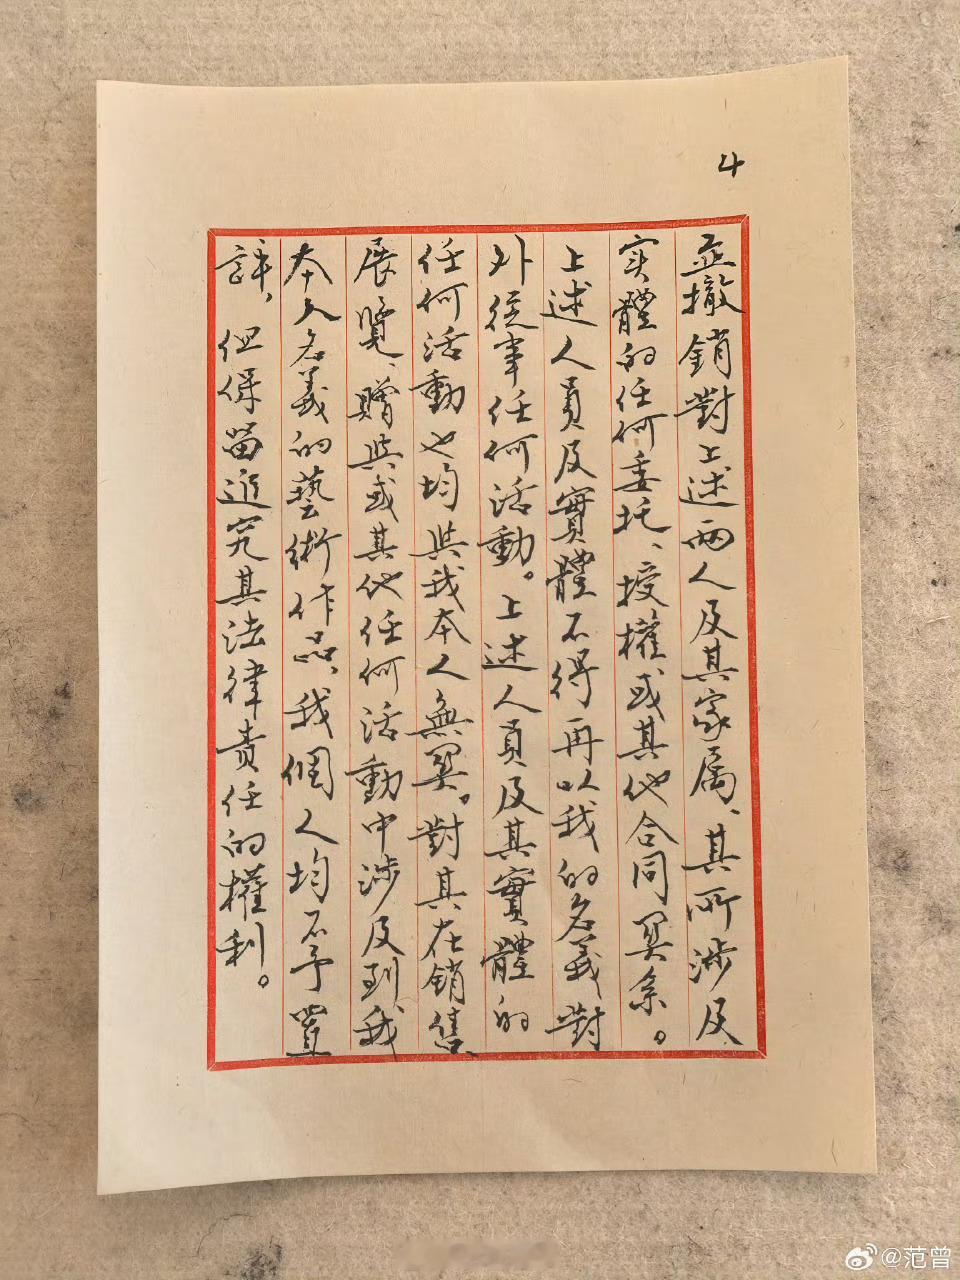 4
並撤銷對上述两人及其家属、其所涉及
实體的任何委托、授權或其他合同関系。
上述人員及實體不得再以我的名義對
外從事任何活動。上述人員及其實體的
任何活動也均與我本人無関。對其在銷售、
展覽、贈與或其他任何活動中涉及到我
本人名義的藝術作品、我個人均不予置
評，但保留追究其法律責任的權利。
@范曾